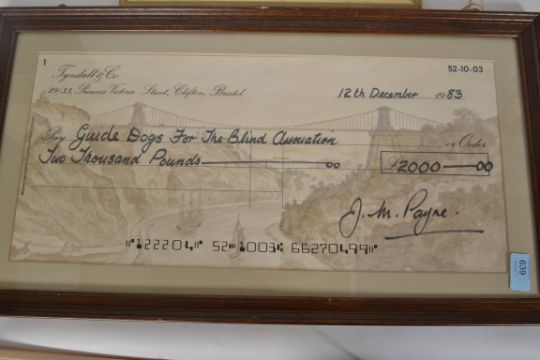 1
52-10-03
Tyndall & Co
29/33, Princess Victoria Street, Clifton, Bristol
12th December 1983
Pay Guide Dogs For The Blind Association or Order
Two Thousand Pounds — 00
£2000 — 00
J. M. Payne.
⑈122204⑈ 52⑉1003⑆ 66270499⑈
639